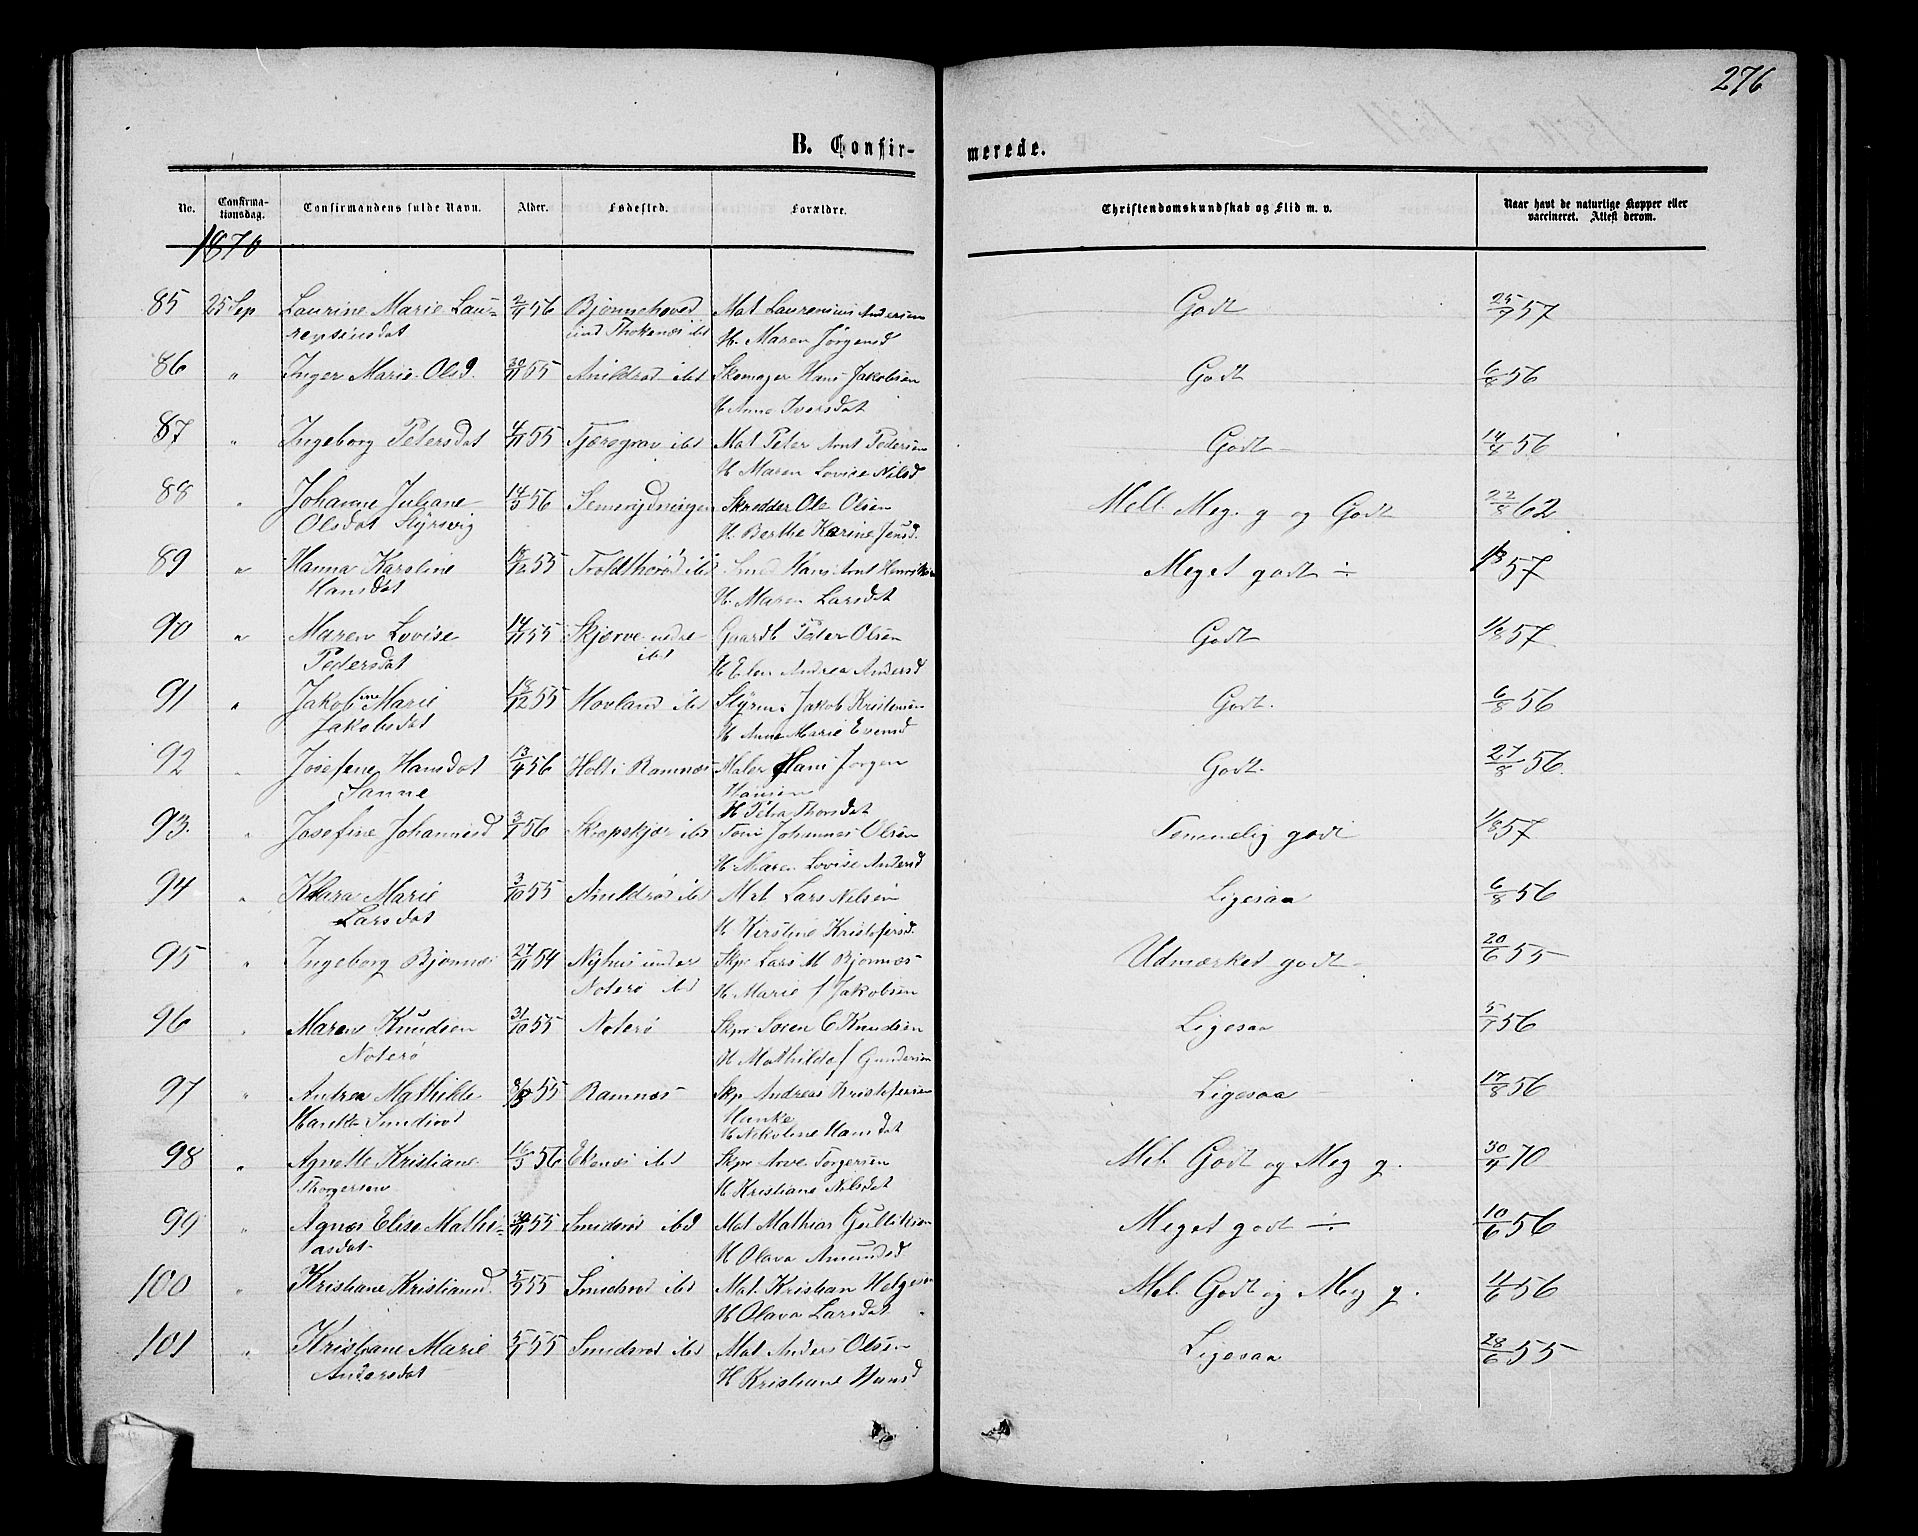 276
B. Confir-
merede.
No.
Confirma-
tionsdag.
Confirmandens fulde Navn.
Alder.
Fødested.
Forældre.
Christendomskundskab og Flid m. v.
Naar havt de naturlige Kopper eller
vaccineret. Attest derom.
1870
85 25 Sep Laurine Marie Lau- 2/4 56 Bjønnehoved Mat Laurentius Andersen Godt 25/7 57
rentsinsdat ibd H. Maren Jørgensd
86 " Inger Marie Olsd. 30/11 55 ibd Skomager Hans Jakobsen Godt 6/8 56
H Anne Iversdat
87 " Ingeborg Petersdat 4/11 55 Tjæregrav ibd Mat Peter Arnt Pedersen Godt 14/4 56
H Maren Lovise Nilsd
88 " Johanne Juliane 14/3 56 Semsrydningen Skrædder Ole Olsen Mell. Meg. g og Godt 22/8 62
Olsdat H. Berthe Karine Jensd.
89 " Hanna Karoline 18/12 55 ibd Smed Hans Arnt Henriksen Meget godt ÷ 57
Hansdat H. Maren Larsdat
90 " Maren Lovise 14/11 55 Skjerve nedre Gaardb Peter Olsen Godt 1/8 57
Pedersdat ibd H Elen Andrea Andersd
91 " Jakobine Marie 18/12 55 Hovland ibd Styrm. Jakob Kristensen Godt. 6/8 56
Jakobsdat H Anne Marie Evensd
92 " Josefine Hansdat 13/4 56 Holt i Ramnæs Maler Hans Jørgen Godt. 27/8 56.
Sanne Hansen
H Petra Thorsdat
93. " Josefine Johannesd 3/1 56 ibd Tøm Johannes Olsen Temmelig godt 1/8 57
H. Maren Lovise Andersd
94 " Klara Marie 3/10 55 ibd Mat Lars Nilsen Ligesaa 6/8 56
Larsdat H Kirstine Kristofersd.
95 " Ingeborg Bjønnes 27/11 54 Nyhus under Skpr Lars M Bjønnes Udmærket godt 20/6 55
Noterø ibd H Marie f Jakobsen
96 " Maren Knudsen 31/10 55 Noterø Skpr Søren C Knudsen Ligesaa 5/7 56
Noterø H Mathilde f Gundersen
97 " Andrea Mathilde 55 Ramnæs Skp Andreas Kristofersen Ligesaa 17/8 56
Smidsrød
H Nikoline Hansdat
98 " Agnette Kristiane 16/3 56 Ekenes ibd Skpr Arve Torgersen Mel. Godt og Meg g. 30/4 70
Thorgersen H Kristiane Nilsdat
99 " Agnes Elise Mathi- 30/11 55 Smidsrød ibd Mat Mathias Gulliksen Meget godt ÷ 10/6 56
asdat H Olava Amundsd
100 " Kristiane Kristiansd. 5/9 55 Smidsrød ibd Mat. Kristian Helgesen Mel. Godt og Meg g. 11/6 56
H Olava Larsdat
101 " Kristiane Marie 5/1 55 Smidsrød ibd Mat Anders Olsen Ligesaa 28/6 55
Andersdat H Kristiane Hansd